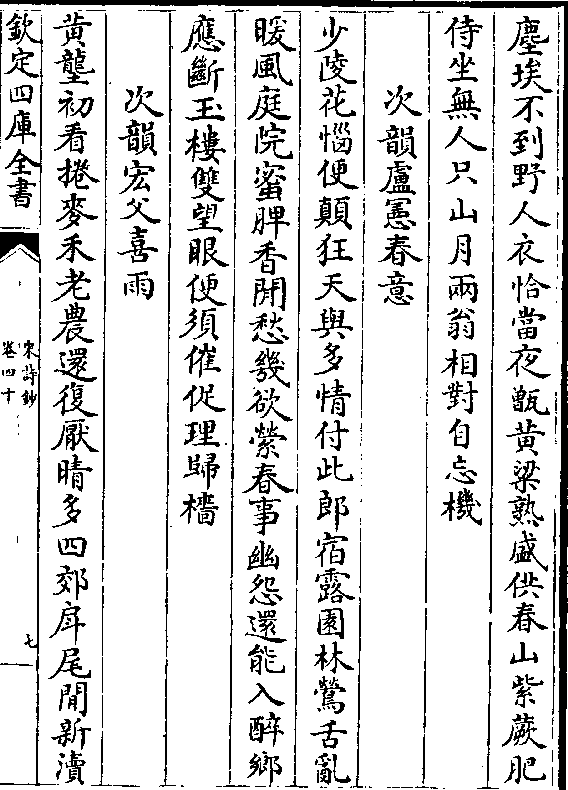 塵埃不到野人衣恰當夜甑黄粱熟盛供春山紫蕨肥
侍坐無人只山月兩翁相對自忘機
次韻盧憲春意
少陵花惱便顛狂天與多情付此郎宿露園林鶯舌亂
暖風庭院蜜脾香閒愁幾欲縈春事幽怨還能入醉鄉
應斷玉樓雙望眼便須催促理歸檣
次韻宏父喜雨
黄壟初看捲麥禾老農還復厭晴多四郊戽尾閒新瀆
欽定四庫全書
宋詩鈔
卷四十
七